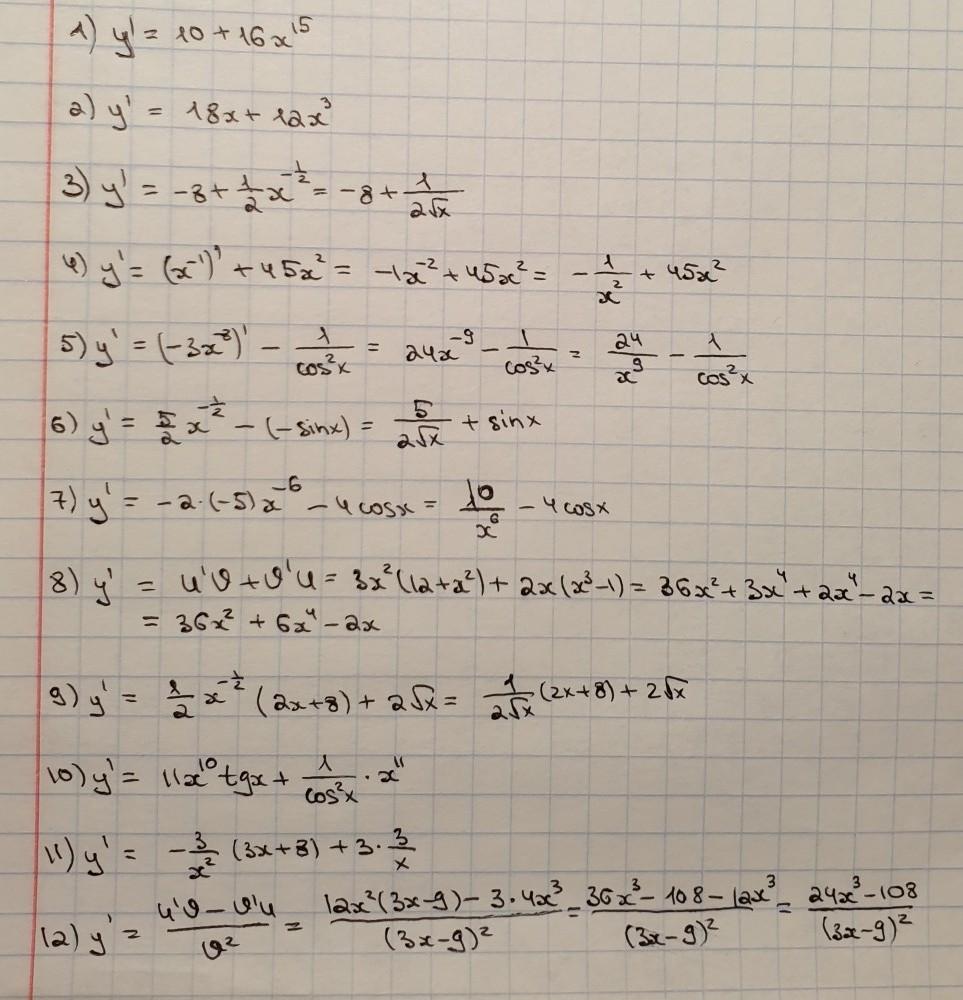 1) y' = 10 + 16x¹⁵
2) y' = 18x + 12x³
3) y' = -8 + 1/2 x^(-1/2) = -8 + 1/(2√x)
4) y' = (x⁻¹)' + 45x² = -1x⁻² + 45x² = -1/x² + 45x²
5) y' = (-3x⁻⁸)' - 1/cos²x = 24x⁻⁹ - 1/cos²x = 24/x⁹ - 1/cos²x
6) y' = 5/2 x^(-1/2) - (-sinx) = 5/(2√x) + sinx
7) y' = -2·(-5)x⁻⁶ - 4cosx = 10/x⁶ - 4cosx
8) y' = u'ϑ + ϑ'u = 3x²(12+x²) + 2x(x³-1) = 36x² + 3x⁴ + 2x⁴ - 2x =
= 36x² + 6x⁴ - 2x
9) y' = 1/2 x^(-1/2) (2x+8) + 2√x = 1/(2√x) (2x+8) + 2√x
10) y' = 11x¹⁰tgx + 1/cos²x · x¹¹
11) y' = -3/x² (3x+8) + 3·3/x
12) y' = (u'ϑ - ϑ'u)/ϑ² = (12x²(3x-9) - 3·4x³)/(3x-9)² = (36x³ - 108 - 12x³)/(3x-9)² = (24x³ - 108)/(3x-9)²